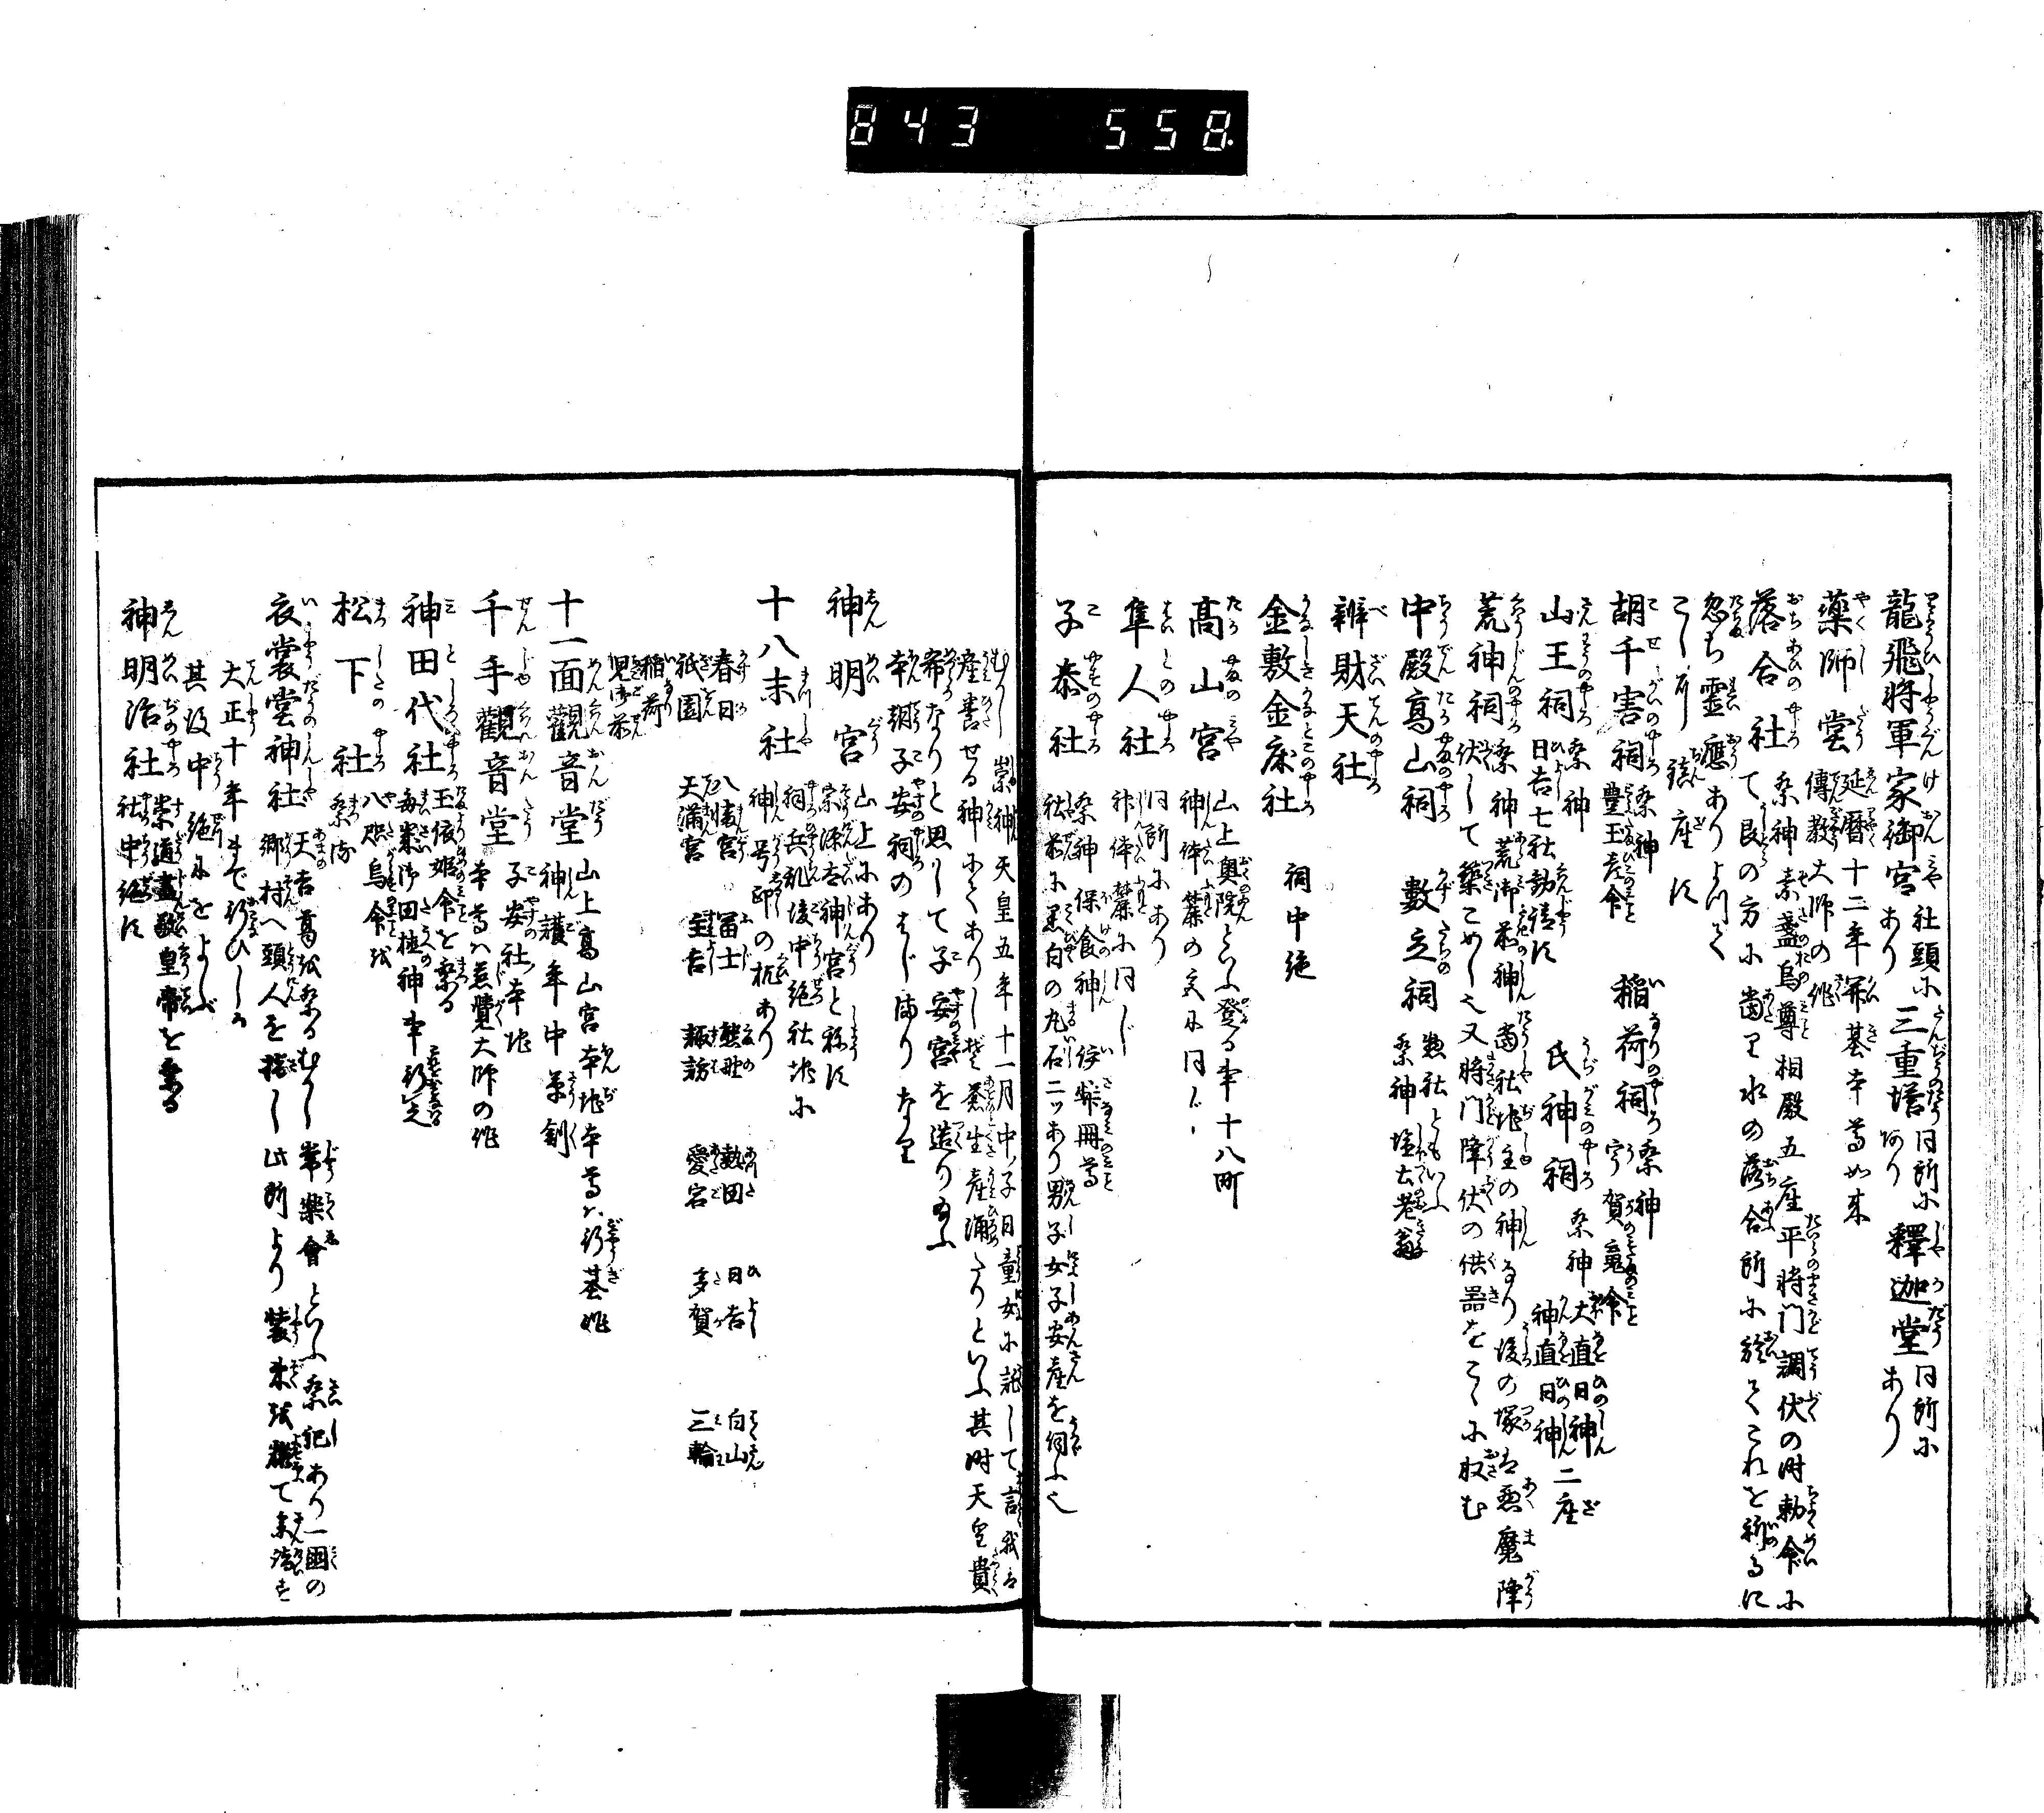 843 558
龍飛将軍家御宮 社頭にあり 三重塔 同所にあり 釋迦堂 同所にあり
薬師堂 延暦十二年開基本尊如来
傳教大師の作
落合社 祭神素盞烏尊相殿五座平将門調伏の時勅命に
て艮の方に當り水の落合所に於てこれを祈るに
忽ち霊應ありよつて
こゝに鎮座す
胡千害祠 祭神 豊玉彦命 稲荷祠 祭神 宇賀
山王祠 祭神 日吉七社勧請す 氏神祠 祭神 大直日神 神直日神 二座
荒神祠 祭神荒御前神當社地主の神なり後の塚は悪魔降
伏して築こめし也又将門降伏の供器をこゝに収む
中殿高山祠 数立祠 惣社ともいふ
祭神塩土老翁
辨財天社
金敷金床社 祠中絶
高山宮 山上奥院といふ登る事十八町
神体麓の宮に同じ
隼人社 同所にあり
神体麓に同じ
子泰社 祭神保食神 伊弉冊尊
社前に黒白の丸石二ツあり男子女子安産を伺ふ也
むかし崇神天皇五年十一月中ノ子日童女に託して言我は
産書せる神にてありし蒼生産涌たりといふ其時天皇貴
希なりと思して子安宮を造り玉ふ
本朝子安祠のはじまりなり
神明宮 山上にあり
宗源太神宮と称す
十八末社 神号印の杭あり
祠兵乱後中絶社地に
春日 八幡宮 冨士 熊野 熱田 日吉 白山
稲荷
祇園 天満宮 住吉 諏訪 愛宕 多賀 三輪
稲荷
児御前
十一面觀音堂 山上高山宮本地本尊は行基作
神護年中草創
千手觀音堂 子安社本地
本尊は慈覺大師の作
神田代社 玉依姫命を祭る
毎歳御田植神事行之
松下社 祭る
八咫烏命
衣裳堂神社 天吉葛を祭るむかし常樂會といふ祭祀あり一國の
郷村へ頭人を指し此所より装束
大正十年まで行ひしか
其後中絶にをよふ
神明治社 崇道盡敬皇帝を祭る
社中絶す